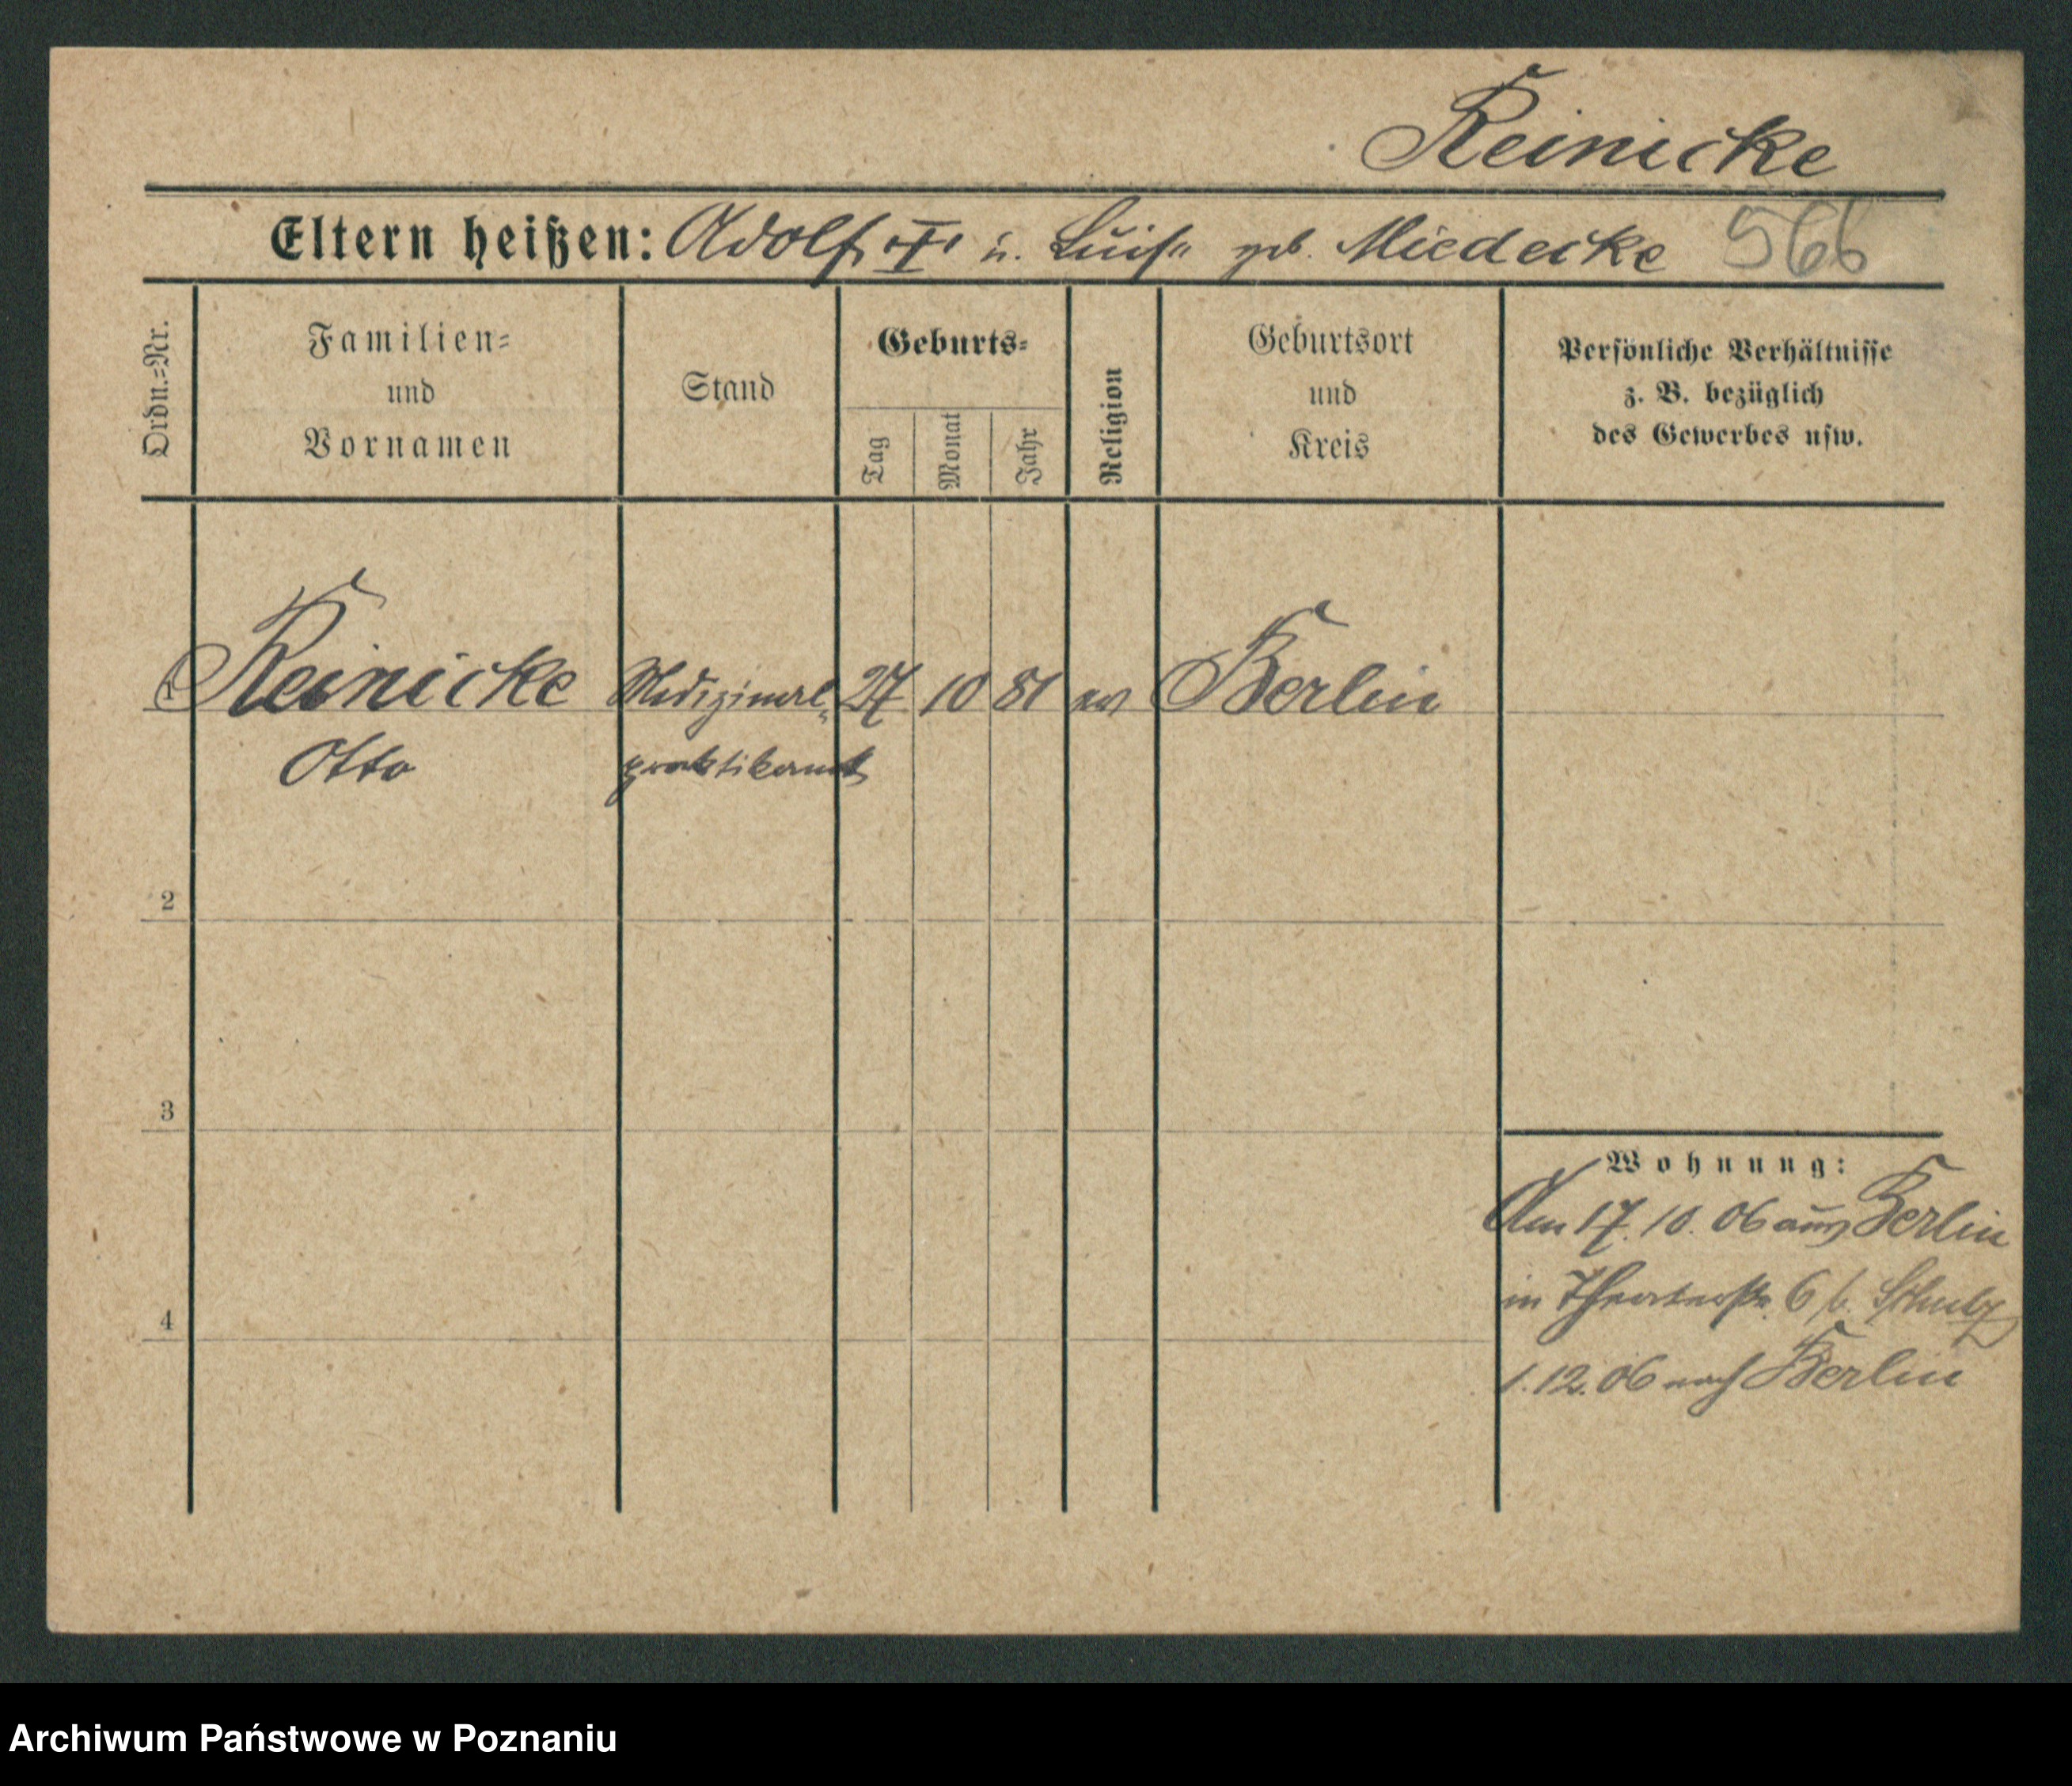 Reinicke
Eltern heißen: Adolf I u. Luise geb. Miedecke 566
Ordn.=Nr.
Familien=
und
Vornamen
Stand
Geburts=
Tag
Monat
Jahr
Religion
Geburtsort
und
Kreis
Persönliche Verhältnisse
z. B. bezüglich
des Gewerbes usw.
1 Reinicke Medizinal= 27 10 81 ev Berlin
Otto praktikant
2
3
4
Wohnung:
Am 17. 10. 06 aus Berlin
in Theaterstr. 6 b. Schulz
1. 12. 06 nach Berlin
Archiwum Państwowe w Poznaniu